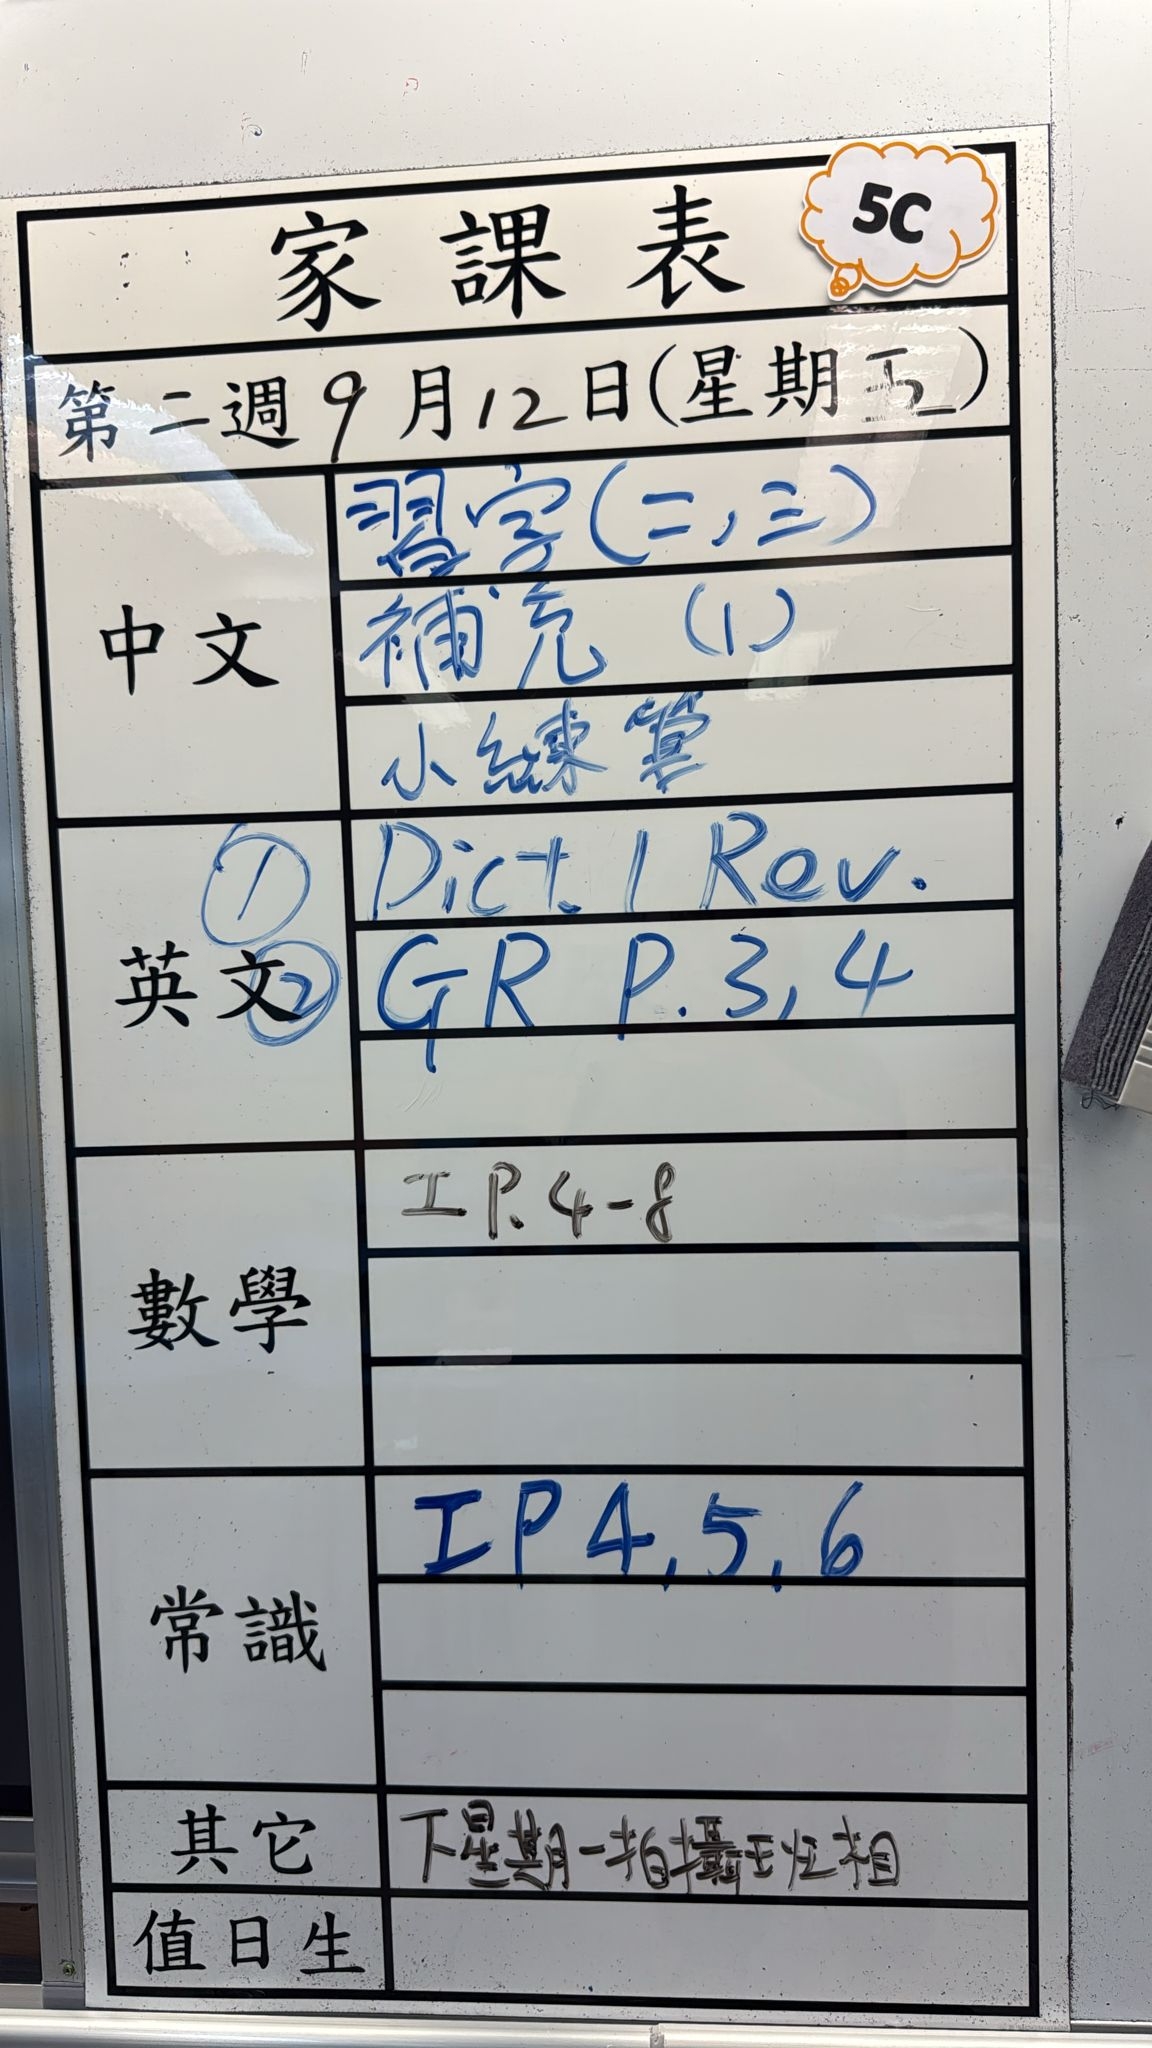 家課表
5C
第二週9月12日(星期五)
中文
習字(二,三)
補充 (1)
小練筆
英文
① Dict. 1 Rev.
② GR P.3,4
數學
工 P.4-8
常識
工 P 4,5,6
其它
下星期一拍攝班相
值日生